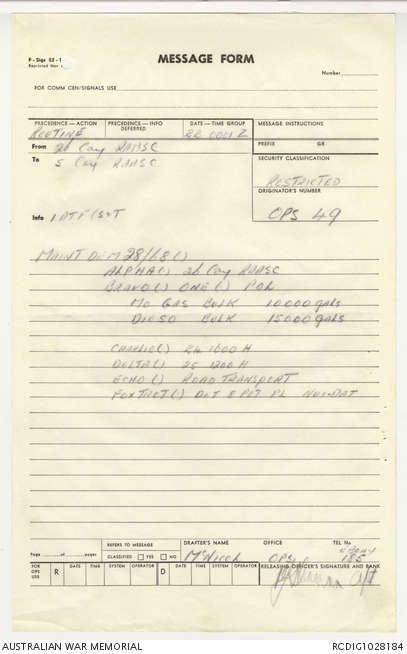 F - Sigs 52 - 1
Reprinted Nov
MESSAGE FORM
Number
FOR COMM CEN/SIGNALS USE
PRECEDENCE—ACTION PRECEDENCE—INFO DATE—TIME GROUP MESSAGE INSTRUCTIONS
ROUTINE DEFERRED 22 0001 Z
PREFIX GR
From 26 Coy RAASC
To 5 Coy RAASC
SECURITY CLASSIFICATION
RESTRICTED
ORIGINATOR'S NUMBER
Info 1 ATF (S&T OPS 49
MAINT DEM 28/68 ()
ALPHA () 26 Coy RAASC
BRAVO () ONE () POL
MO GAS BULK 10000 gals
DIESO BULK 15000 gals
CHARLIE () 24 1600 H
DELTA () 25 1200 H
ECHO () ROAD TRANSPORT
FOXTROT () DET 8 PET PL NUI DAT
REFERS TO MESSAGE DRAFTER'S NAME OFFICE TEL No
Page of pages CLASSIFIED YES NO McNicol OPS 185
FOR OPS USE R DATE TIME SYSTEM OPERATOR D DATE TIME SYSTEM OPERATOR RELEASING OFFICER'S SIGNATURE AND RANK
Capt
AUSTRALIAN WAR MEMORIAL RCDIG1028184